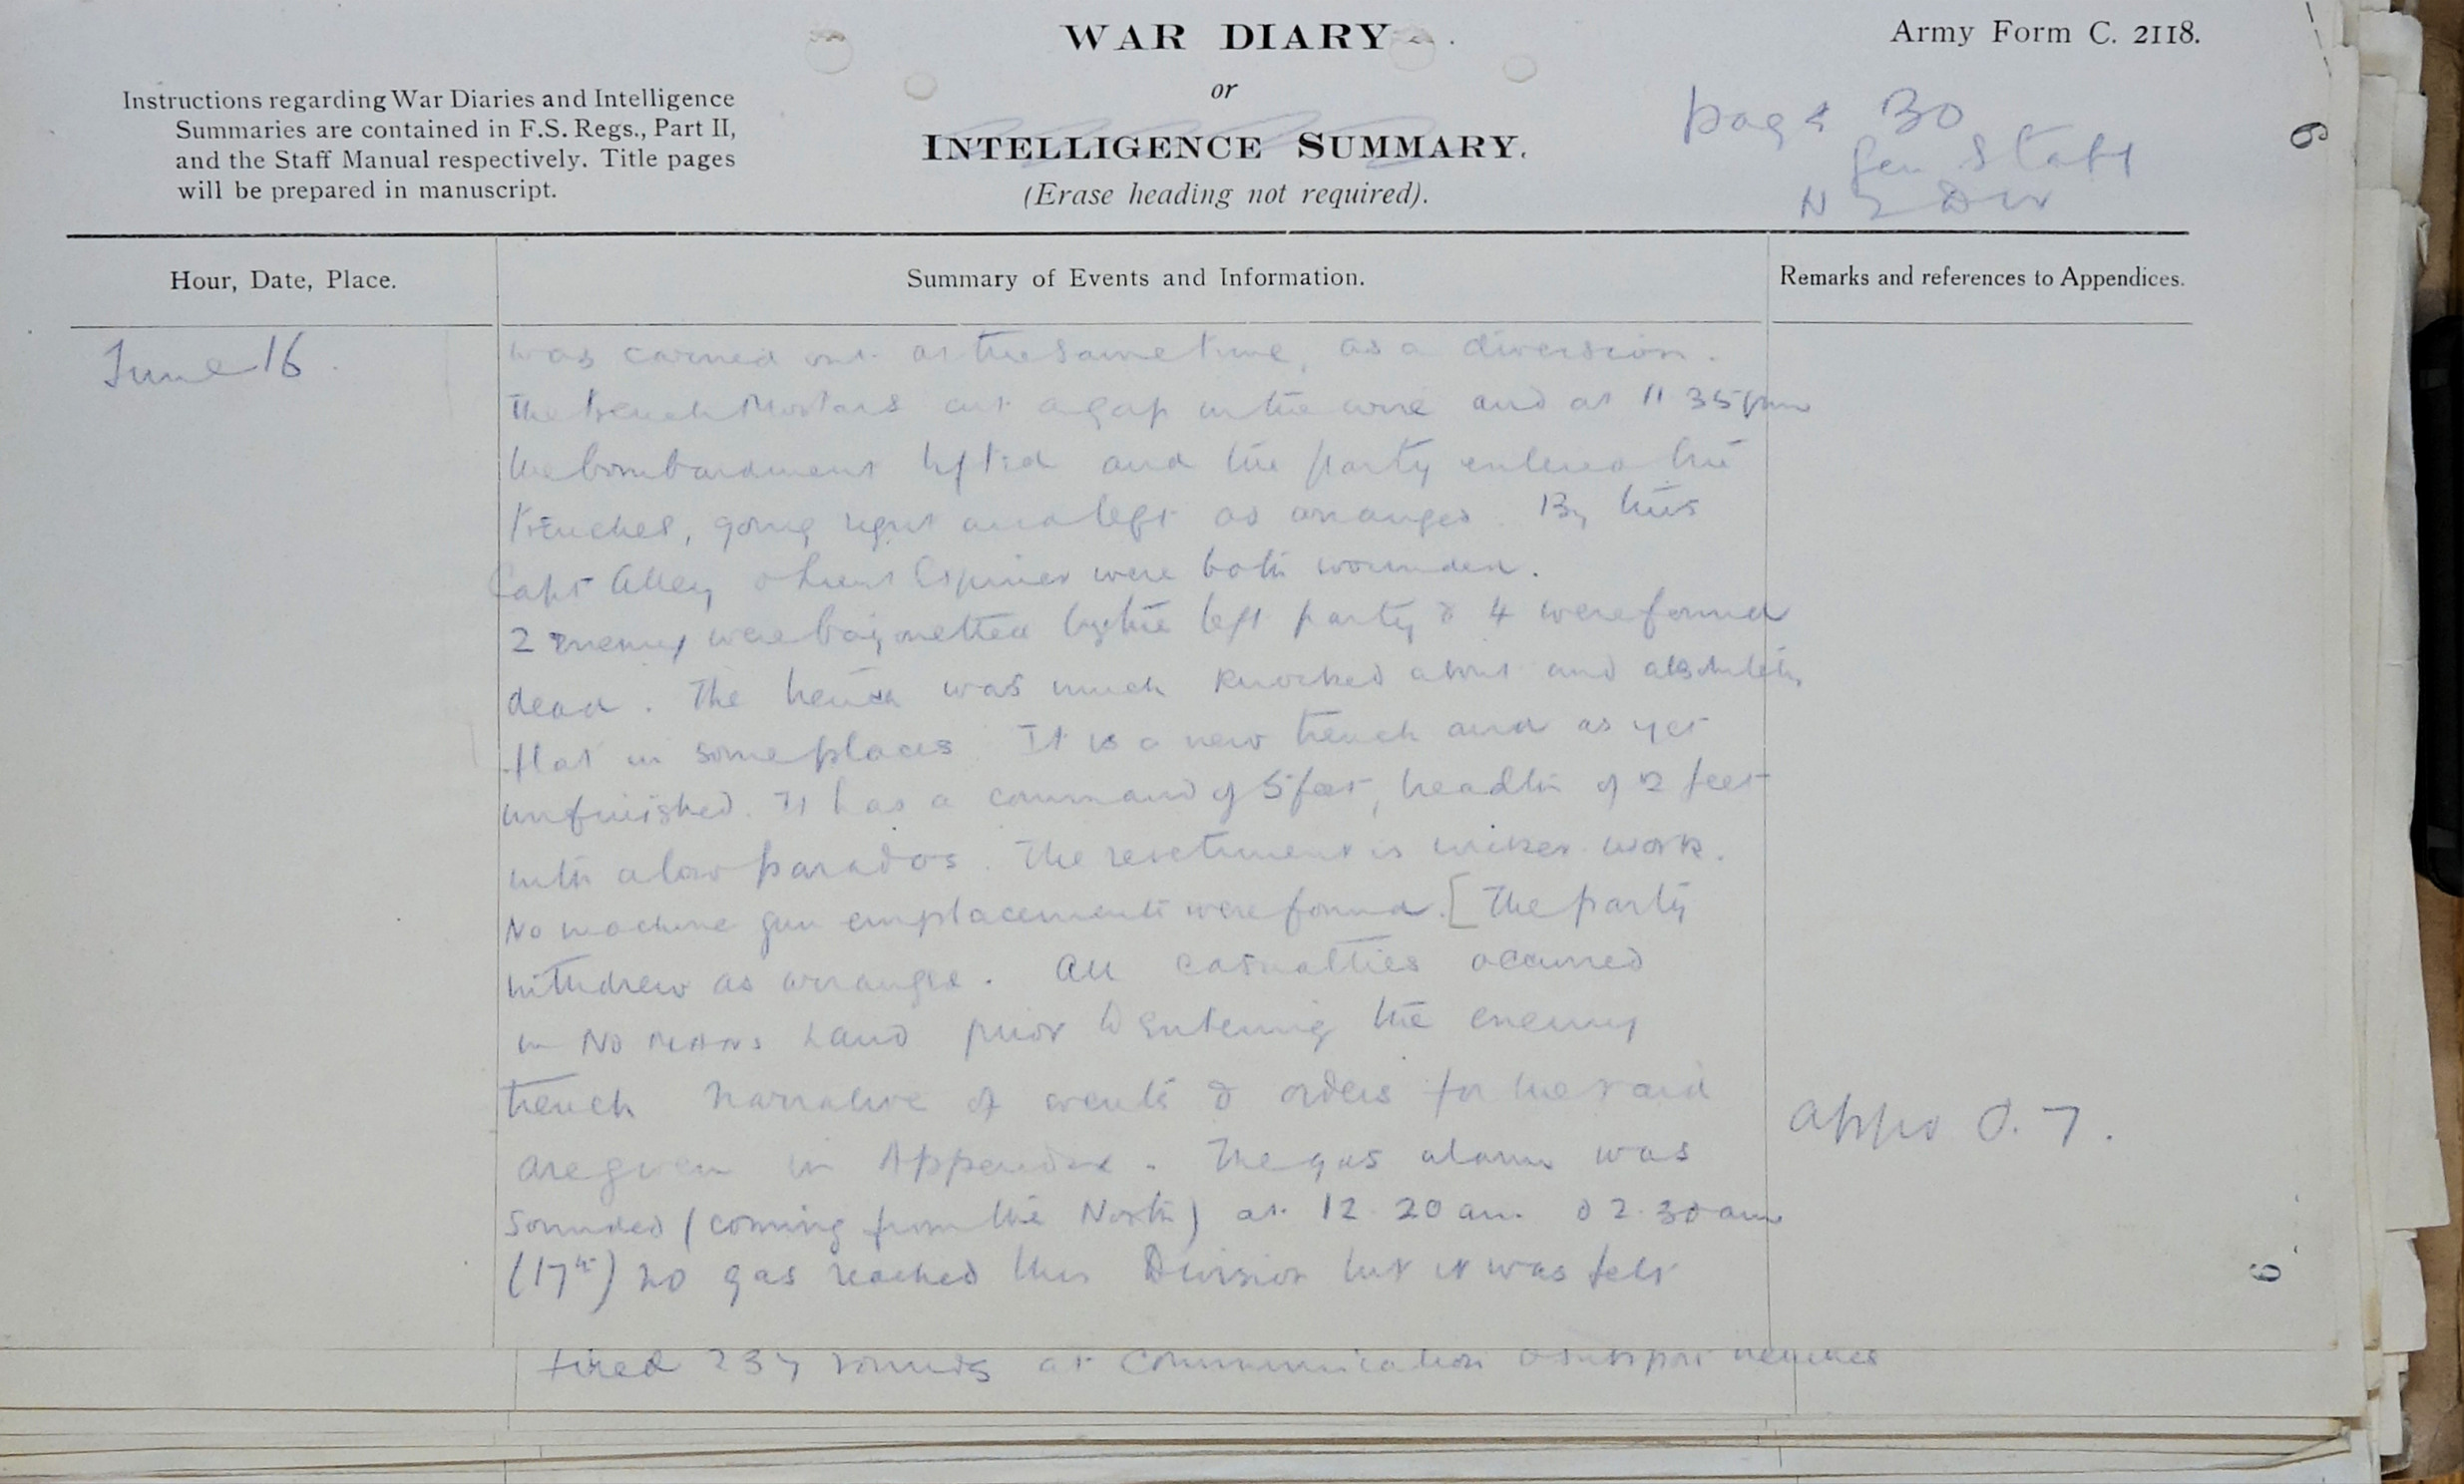 WAR DIARY
or
INTELLIGENCE SUMMARY.
(Erase heading not required).
Army Form C. 2118.
Instructions regarding War Diaries and Intelligence
Summaries are contained in F.S. Regs., Part II,
and the Staff Manual respectively. Title pages
will be prepared in manuscript.
page 30
Gen Staff
N Z Div
6
Hour, Date, Place.
Summary of Events and Information.
Remarks and references to Appendices.
June 16.
was carried out at the same time, as a diversion.
The trench Mortars cut a gap in the wire and at 11 35 pm
the bombardment lifted and the party entered the
trenches, going right and left as arranged. By this
Capt Alley & Lieut were both wounded.
2 enemy were bayonetted by the left party & 4 were found
dead. The trench was much knocked about and absolutely
flat in some places It is a new trench and as yet
unfinished. It has a command of 5 feet, breadth of 2 feet
with a low parados. The revetment is wicker work.
No machine gun emplacements were found. [The party
withdrew as arranged. All casualties occurred
in NO MANS Land prior to entering the enemy
trench Narrative of events & orders for the raid
are given in Appendix. The gas alarm was
Appx O. 7.
sounded (coming from the North) at 12.20 am. & 2.30 am
(17th) no gas reached this Division but it was felt
6
fired 237 rounds at Communication & support trenches